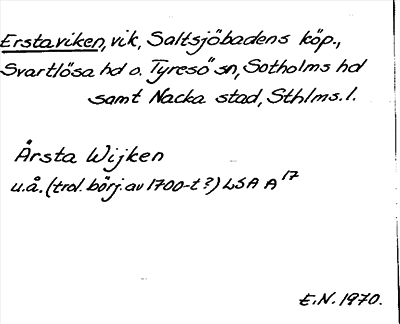 Erstaviken, vik, Saltsjöbadens köp.,
Svartlösa hd o. Tyresö sn, Sotholms hd
samt Nacka stad, Sthlms. l.
Årsta Wijken
u.å. (trol. börj. av 1700-t?) LSA A 17
E.N. 1970.